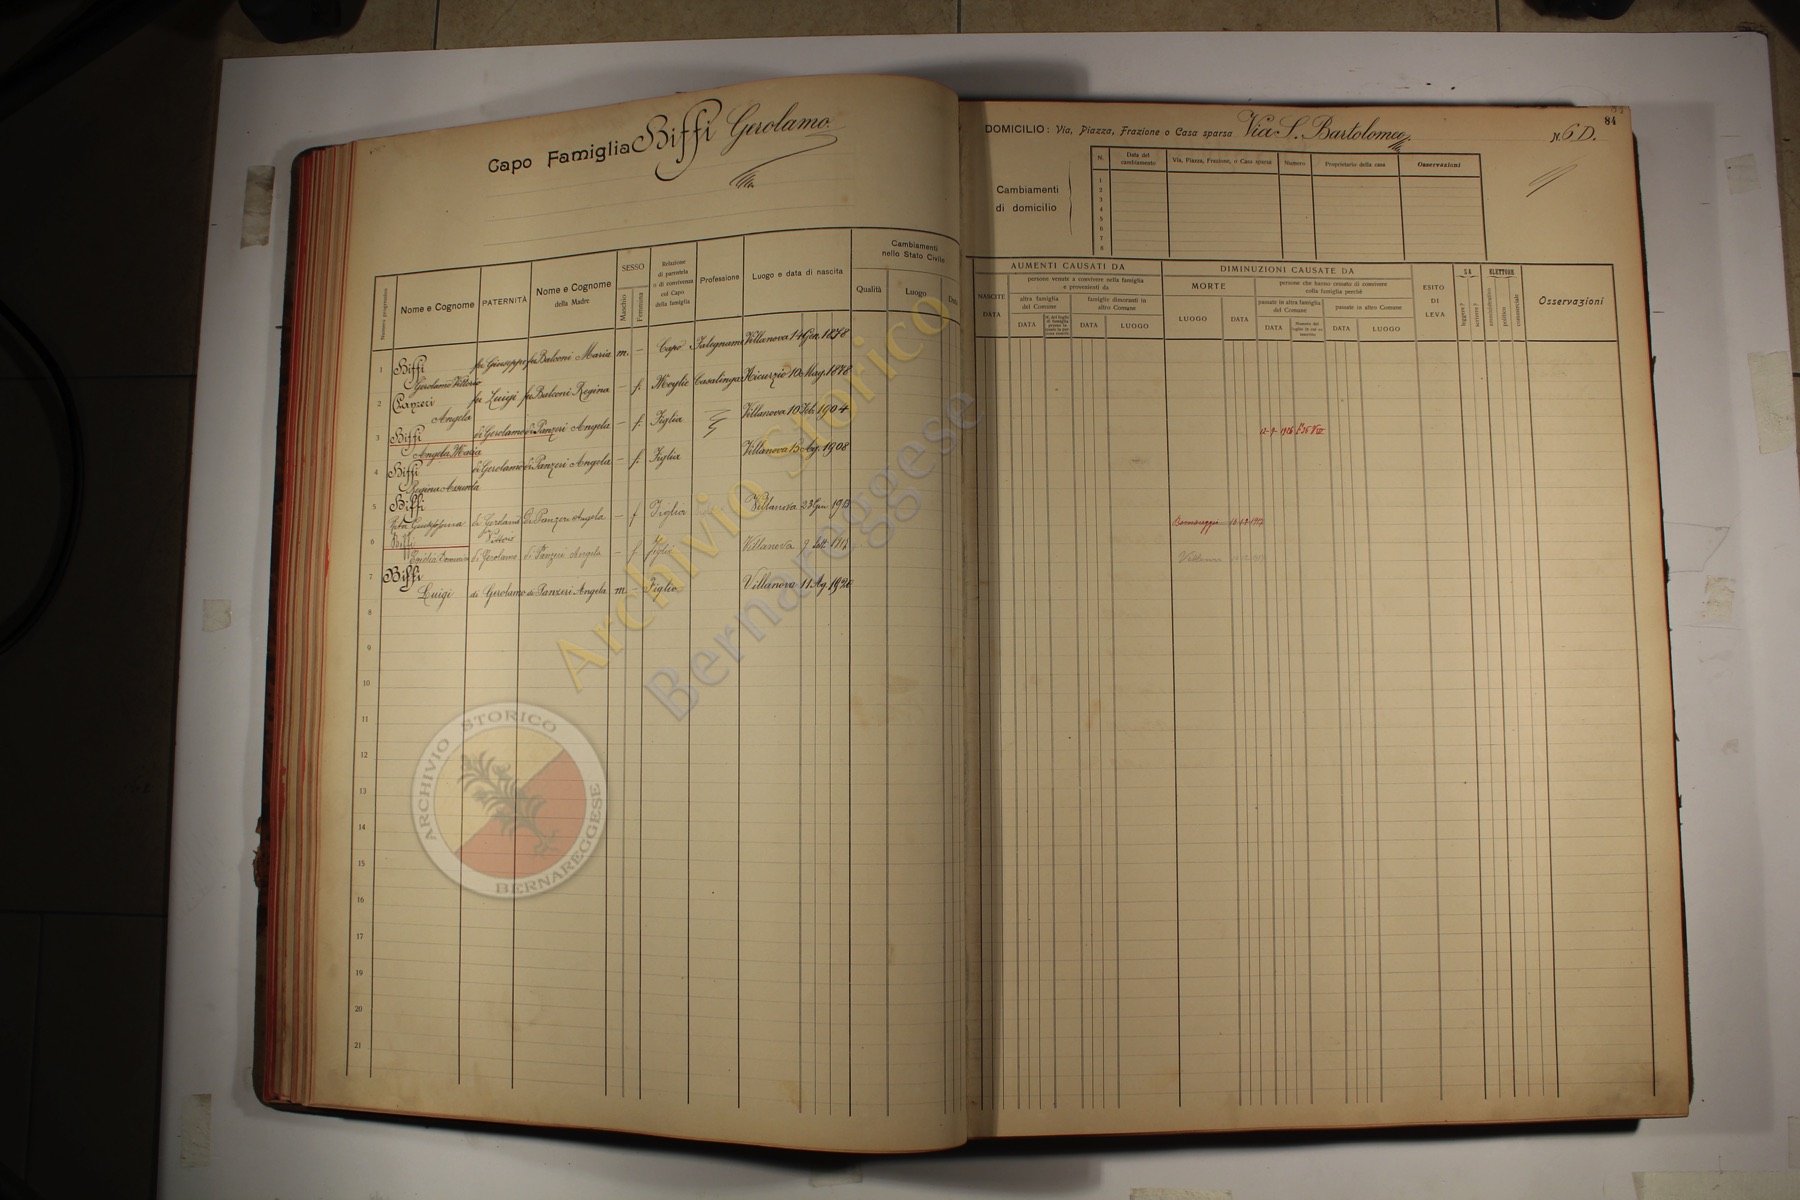 Capo Famiglia Biffi Gerolamo
84
DOMICILIO: Via, Piazza, Frazione o Casa sparsa Via S. Bartolomeo N. 6 D.
Cambiamenti di domicilio
N. Data del cambiamento Via, Piazza, Frazione, o Casa sparsa Numero Proprietario della casa Osservazioni
1
2
3
4
5
6
7
8
Numero progressivo Nome e Cognome PATERNITÀ Nome e Cognome della Madre SESSO Maschio Femmina Relazione di parentela o di convivenza col Capo della famiglia Professione Luogo e data di nascita Cambiamenti nello Stato Civile Qualità Luogo Data
NASCITE DATA AUMENTI CAUSATI DA persone venute a convivere nella famiglia e provenienti da altra famiglia del Comune DATA famiglie dimoranti in altro Comune DATA LUOGO
DIMINUZIONI CAUSATE DA MORTE LUOGO DATA persone che hanno cessato di convivere colla famiglia perchè passate in altra famiglia del Comune DATA passate in altro Comune DATA LUOGO
ESITO DI LEVA SA leggere? scrivere? ELETTORE amministrativo politico commerciale Osservazioni
1 Biffi Gerolamo Vittorio fu Giuseppe fu Balconi Maria m. – Capo Falegname Villanova 14 Gen. 1878
2 Panzeri Angela fu Luigi fu Balconi Regina – f. Moglie Casalinga Aicurzio 10 Mag. 1878
3 Biffi Angela Maria di Gerolamo di Panzeri Angela – f. Figlia Villanova 10 Feb. 1904
4 Biffi Regina Assunta di Gerolamo di Panzeri Angela – f. Figlia Villanova 15 Ag. 1908
5 Biffi Giuseppina di Gerolamo Vittorio di Panzeri Angela – f Figlia Villanova 1913 Bernareggio
6 Biffi di Gerolamo di Panzeri Angela – f Figlia Villanova 9 Sett. Villanova
7 Biffi Luigi di Gerolamo di Panzeri Angela m. – Figlio Villanova 11 Ag. 1920
8
9
10
11
12
13
14
15
16
17
18
19
20
21
Archivio Storico
Bernareggese
ARCHIVIO STORICO
BERNAREGGESE